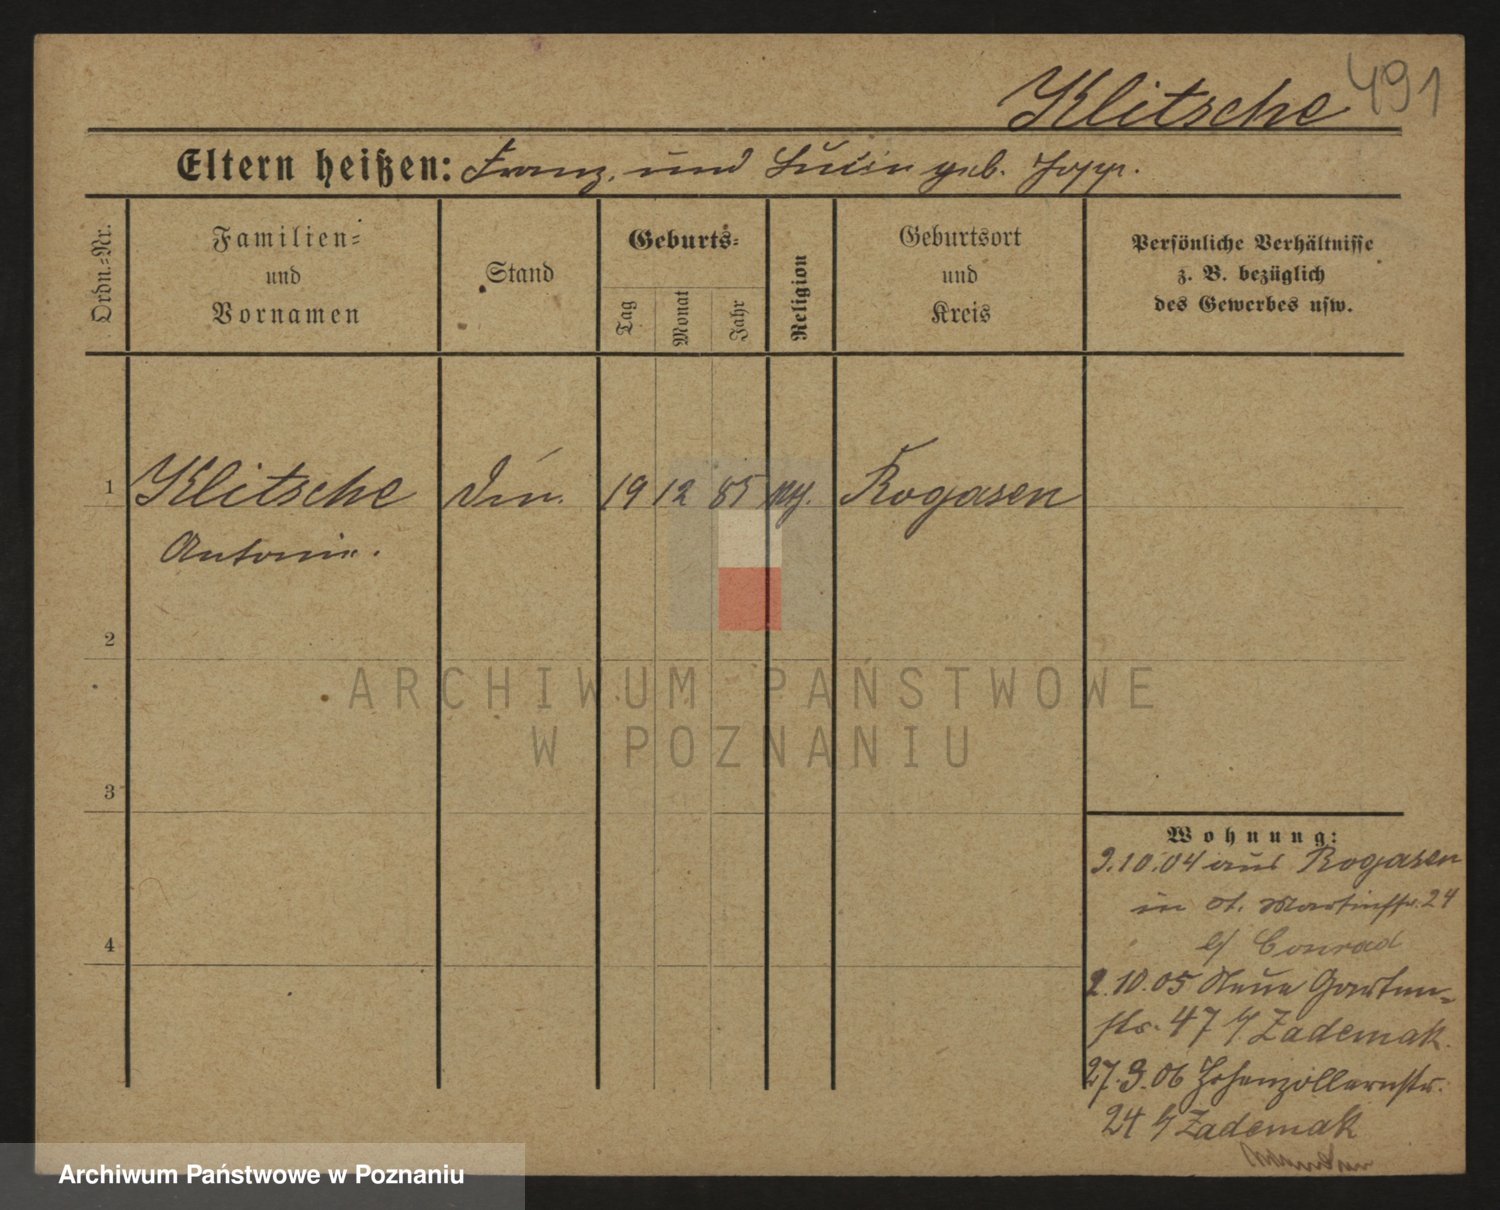 Klitsche 491
Eltern heißen: Franz und Luise geb. Hoppe.
Ordn.-Nr.
Familien-
und
Vornamen
Stand
Geburts-
Tag
Monat
Jahr
Religion
Geburtsort
und
Kreis
Persönliche Verhältnisse
z. B. bezüglich
des Gewerbes usw.
1 Klitsche 19 12 85 Rogasen
Antonie.
2
3
4
Wohnung:
3.10.04 aus Rogasen
in St. Martinstr. 24
b/ Conrad
2.10.05 Neue Garten-
str. 47 b/ Zademak.
27.3.06 Hohenzollernstr.
24 b/ Zademak
ARCHIWUM PAŃSTWOWE
W POZNANIU
Archiwum Państwowe w Poznaniu